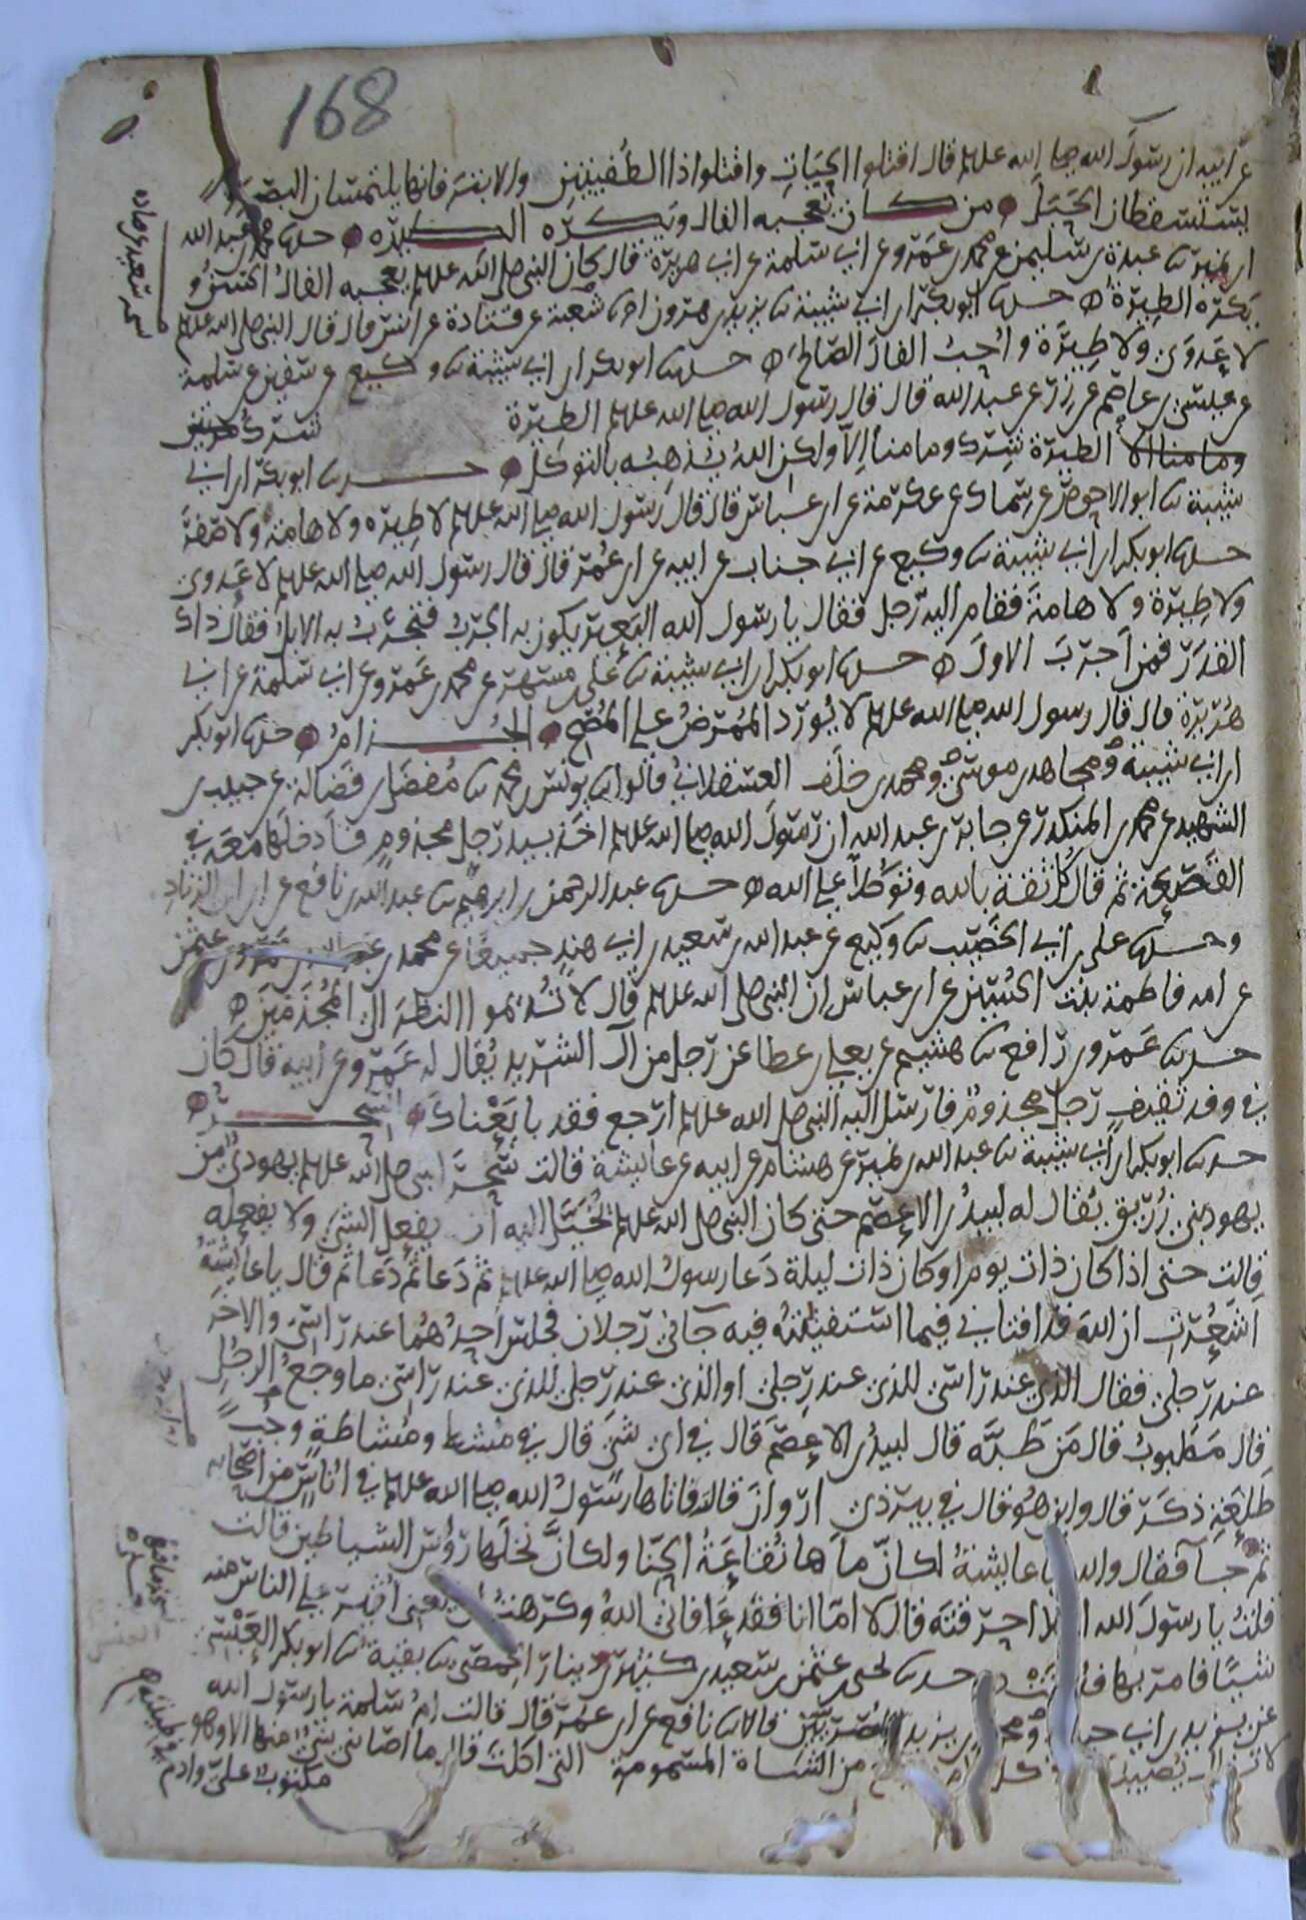 168
عن ابيه ان رسول الله صلى الله عليه وسلم قال اقتلوا الحيات واقتلوا ذا الطفيتين والابتر فانهما يلتمسان البصر
ويسقطان الحبل من كان يعجبه الفال ويكره الطيرة حدثنا محمد بن عبد الله
ابن نمير ثنا عبدة بن سليمن عن محمد بن عمرو عن ابي سلمة عن ابي هريرة قال كان النبي صلى الله عليه وسلم يعجبه الفال الحسن و
يكره الطيرة حدثنا ابو بكر بن ابي شيبة ثنا يزيد بن هرون انا شعبة عن قتادة عن انس قال قال النبي صلى الله عليه وسلم
لا عدوى ولا طيرة واحب الفال الصالح حدثنا ابو بكر بن ابي شيبة ثنا وكيع عن سفين عن سلمة
عن عيسى بن عاصم عن زر عن عبد الله قال قال رسول الله صلى الله عليه وسلم الطيرة شرك
وما منا الا الطيرة شرك وما منا الا ولكن الله يذهبه بالتوكل حدثنا ابو بكر بن ابي
شيبة ثنا ابو الاحوص عن سماك عن عكرمة عن ابن عباس قال قال رسول الله صلى الله عليه وسلم لا طيره ولا هامة ولا صفر
حدثنا ابو بكر بن ابي شيبة ثنا وكيع عن ابي جناب عن ابيه عن ابن عمر قال قال رسول الله صلى الله عليه وسلم لا عدوى
ولا طيرة ولا هامة فقام اليه رجل فقال يا رسول الله البعير يكون به الجرب فتجرب به الابل فقال ذاك
القدر فمن اجرب الاول حدثنا ابو بكر بن ابي شيبة ثنا علي بن مسهر عن محمد بن عمرو عن ابي سلمة عن ابي
هريرة قال قال رسول الله صلى الله عليه وسلم لا يورد الممرض على المصح الجذام حدثنا ابو بكر
ابن ابي شيبة ومجاهد بن موسى ومحمد بن خلف العسقلاني قالوا ثنا يونس بن محمد ثنا مفضل بن فضالة عن حبيب بن
الشهيد عن محمد بن المنكدر عن جابر بن عبد الله ان رسول الله صلى الله عليه وسلم اخذ بيد رجل مجذوم فادخلها معه في
القصعة ثم قال كل ثقة بالله وتوكلا على الله حدثنا عبد الرحمن بن ابرهيم ثنا عبد الله بن نافع عن ابن ابي الزناد
وحدثنا علي بن ابي الخصيب ثنا وكيع عن عبد الله بن سعيد بن ابي هند جميعا عن محمد بن عبد الله بن عمرو بن عثمن
عن امه فاطمة بنت الحسين عن ابن عباس ان النبي صلى الله عليه وسلم قال لا تديموا النظر الى المجذمين
حدثنا عمرو بن رافع ثنا هشيم عن يعلى بن عطا عن رجل من آل الشريد يقال له عمرو عن ابيه قال كان
في وفد ثقيف رجل مجذوم فارسل اليه النبي صلى الله عليه وسلم ارجع فقد بايعناك السحر
حدثنا ابو بكر بن ابي شيبة ثنا عبد الله بن نمير عن هشام عن ابيه عن عايشة قالت سحر النبي صلى الله عليه وسلم يهودي من
يهود بني زريق يقال له لبيد بن الاعصم حتى كان النبي صلى الله عليه وسلم يخيل اليه ان يفعل الشي ولا يفعله
قالت حتى اذا كان ذات يوم او كان ذات ليلة دعا رسول الله صلى الله عليه وسلم ثم دعا ثم دعا ثم قال يا عايشة
اشعرت ان الله قد افتاني فيما استفتيته فيه جاني رجلان فجلس احدهما عند راسي والاخر
عند رجلي فقال الذي عند راسي للذي عند رجلي او الذي عند رجلي للذي عند راسي ما وجع الرجل
قال مطبوب قال من طبه قال لبيد بن الاعصم قال في اي شي قال في مشط ومشاطة وجف
طلعة ذكر قال واين هو قال في بير ذي اروان قالت فاتاها رسول الله صلى الله عليه وسلم في اناس من اصحابه
ثم جا فقال والله يا عايشة لكان ماها نقاعة الحنا ولكان نخلها رؤس الشياطين قالت
قلت يا رسول الله افلا احرقته قال لا اما انا فقد عافاني الله وكرهت ان يعني اثير على الناس منه
شيئا فامر بها فدفنت حدثنا يحيى بن عثمن بن سعيد بن كثير بن دينار الحمصي ثنا بقية ثنا ابو بكر العنسي
عن يزيد بن ابي حبيب ومحمد بن يزيد المصريين قالا ثنا نافع عن ابن عمر قال قالت ام سلمة يا رسول الله
لا يزال يصيبك كل من الشاة المسمومة التي اكلت قال ما اصابني شي منها الا وهو
مكتوب علي وادم في طينته